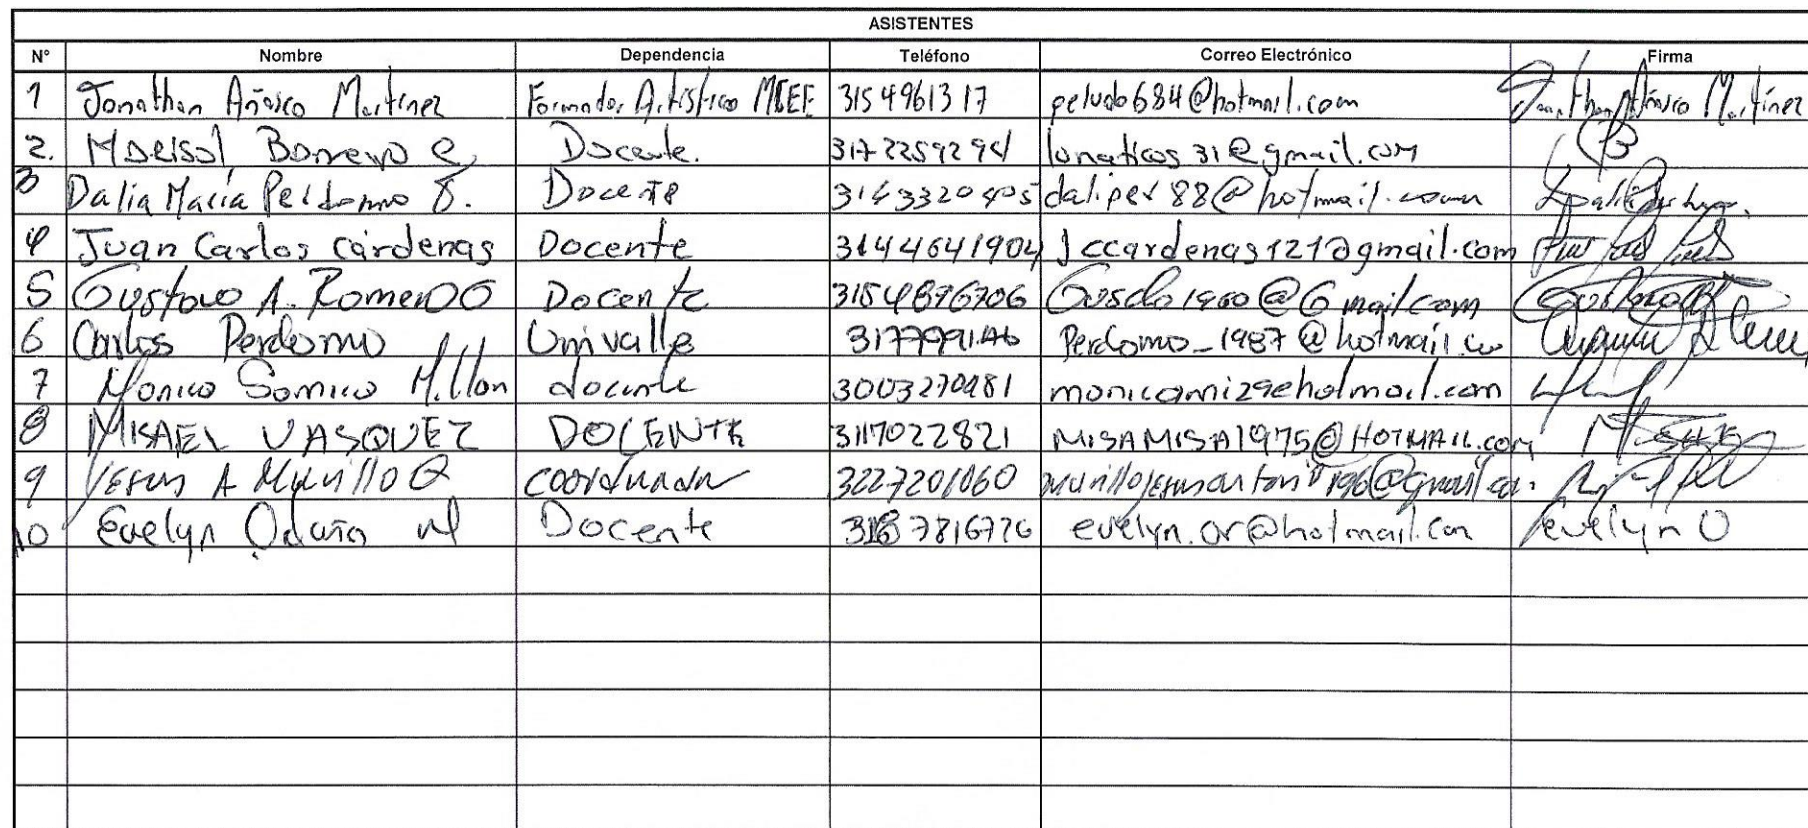 ASISTENTES
N° Nombre Dependencia Teléfono Correo Electrónico Firma
1 Jonathan Añasco Martinez Formador Artístico MCEE 315 4961317 peludo684@hotmail.com Jonathan Añasco Martínez
2. Marisol Borrero Docente. 3172259294 lunaticos31@gmail.com
3 Dalia María Perdomo Docente 3143320405 daliper88@hotmail.com
4 Juan Carlos cárdenas Docente 31444641904 Jccardenas121@gmail.com
5 Gustavo A. Romero Docente 3154876706 @Gmail.com
6 Carlos Perdomo Univalle Perdomo_1987@hotmail.co
7 Monica Millan docente 3003270481 monicami29@hotmail.com
8 MISAEL VASQUEZ DOCENTE 3117022821 MISAMISA1975@HOTMAIL.com
9 Jesus A Murillo Q coordinador 3227201060
10 Evelyn Docente 7816726 evelyn.or@hotmail.com evelyn O